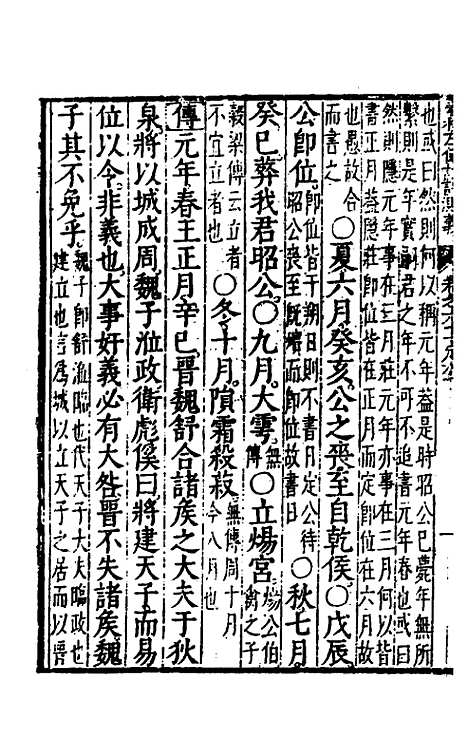 也或曰然則何以稱元年蓋是時昭公已薨年無所
繫則是年實爲君之年不可不追書元年春也或曰
然則隱元年事在三月莊元年亦事在三月何以皆
書正月蓋隱莊即位皆在正月而定即位在六月故
也愚故合
而書之
○夏六月癸亥公之喪至自乾侯○戊辰
公卽位
即位皆于朔日則不書日定公待
昭公喪至既殯而即位故書日
○秋七月
癸巳葬我君昭公○九月大雩
無
傳
○立煬宮
煬公伯
禽之子
穀梁傳云立者
不宜立者也
○冬十月隕霜殺菽
無傳周十月
今八月也
傳元年春王正月辛巳晉魏舒合諸侯之大夫于狄
泉將以城成周魏子涖政衛彪傒曰將建天子而易
位以令非義也大事好義必有大咎晉不失諸侯魏
子其不免乎
魏子卽舒涖臨也代天子大夫臨政也
建立也言爲城以立天子之居而以晉